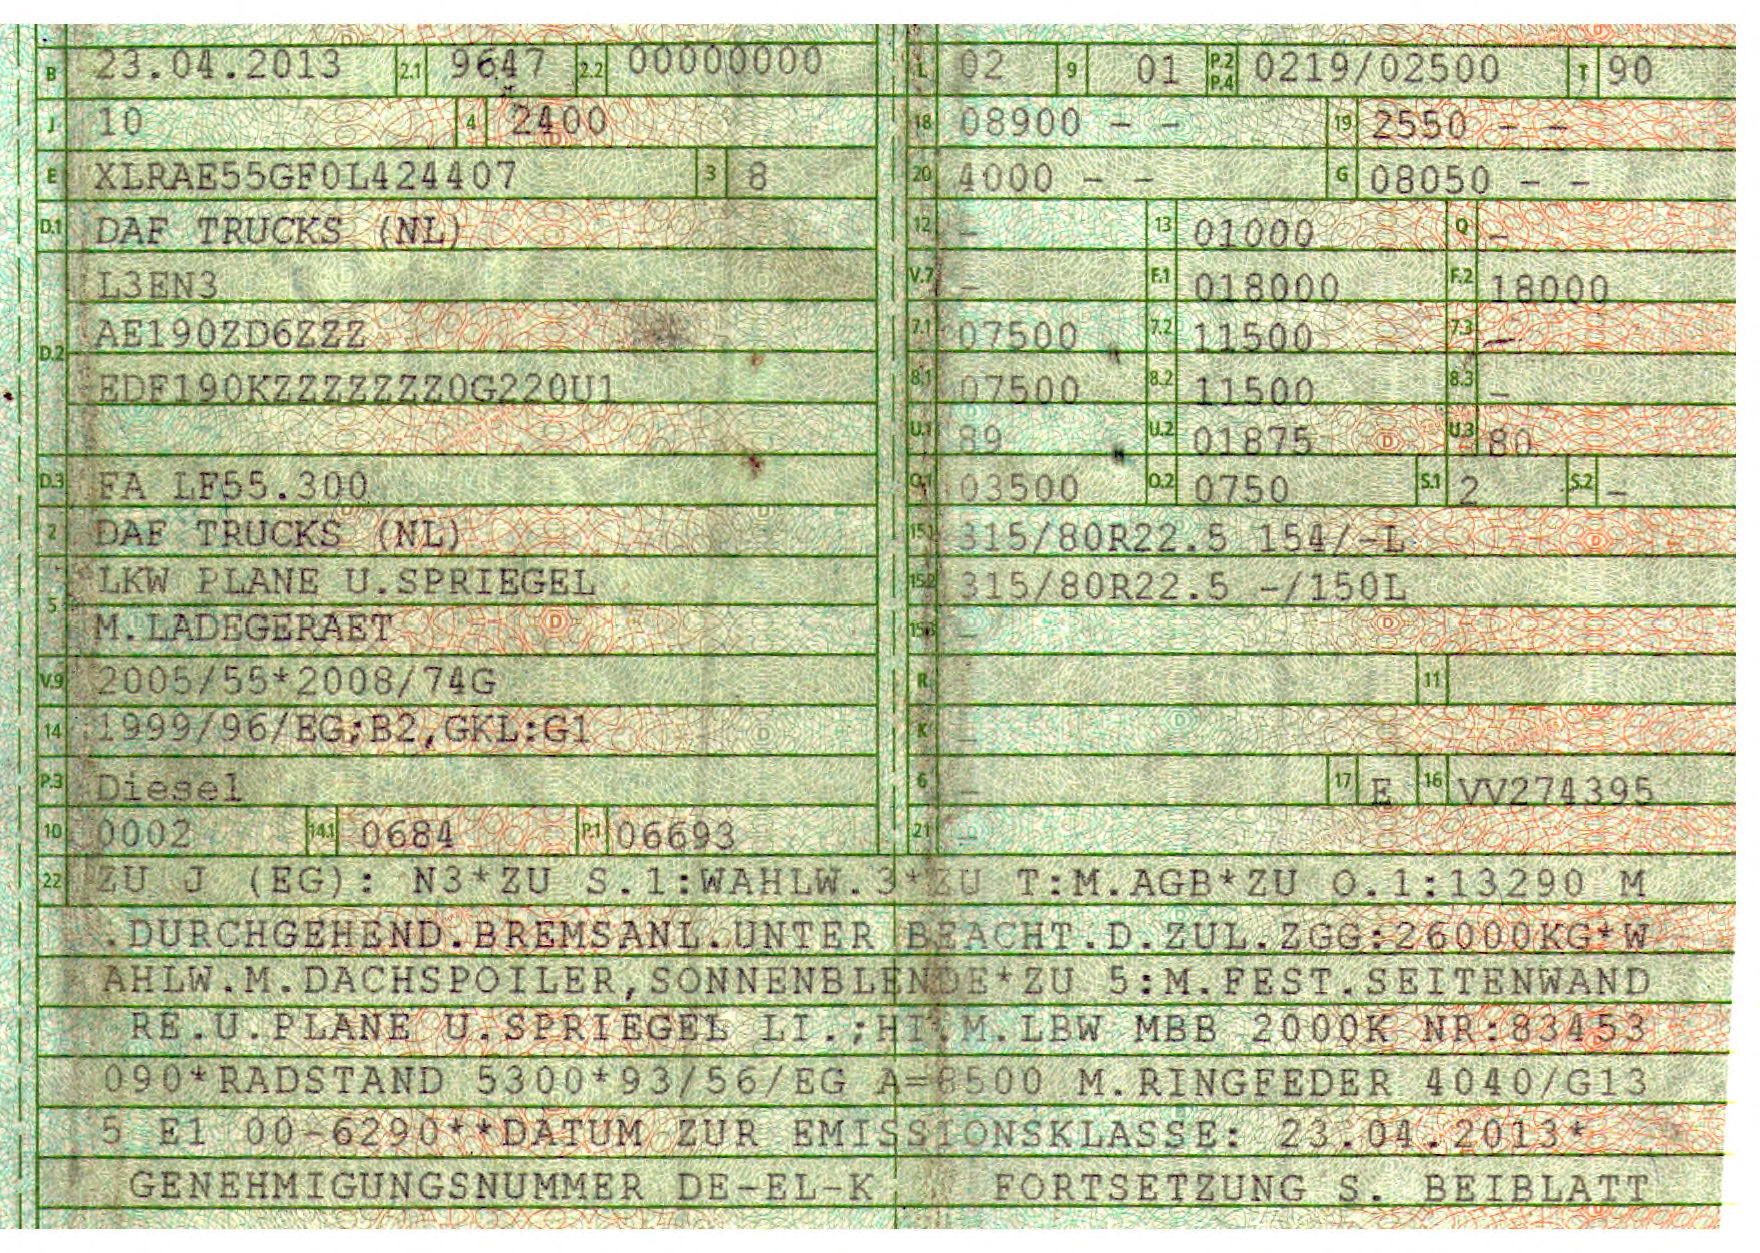 B 23.04.2013 2.1 9647 2.2 00000000
J 10 4 2400
E XLRAE55GF0L424407 3 8
D.1 DAF TRUCKS (NL)
L3EN3
D.2 AE190ZD6ZZZ
EDF190KZZZZZZZ0G220U1
D.3 FA LF55.300
2 DAF TRUCKS (NL)
5 LKW PLANE U.SPRIEGEL
M.LADEGERAET
V.9 2005/55*2008/74G
14 1999/96/EG;B2,GKL:G1
P.3 Diesel
10 0002 14.1 0684 P.1 06693
L 02 9 01 P.2 P.4 0219/02500 T 90
18 08900 - - 19 2550 - -
20 4000 - - G 08050 - -
12 - 13 01000 Q -
V.7 - F.1 018000 F.2 18000
7.1 07500 7.2 11500 7.3 -
8.1 07500 8.2 11500 8.3 -
U.1 89 U.2 01875 U.3 80
O.1 03500 O.2 0750 S.1 2 S.2 -
15.1 315/80R22.5 154/-L
15.2 315/80R22.5 -/150L
15.3 -
R 11
K -
6 - 17 E 16 VV274395
21 -
22 ZU J (EG): N3*ZU S.1:WAHLW.3*ZU T:M.AGB*ZU O.1:13290 M
.DURCHGEHEND.BREMSANL.UNTER BEACHT.D.ZUL.ZGG:26000KG*W
AHLW.M.DACHSPOILER,SONNENBLENDE*ZU 5:M.FEST.SEITENWAND
RE.U.PLANE U.SPRIEGEL LI.;HI.M.LBW MBB 2000K NR:83453
090*RADSTAND 5300*93/56/EG A=8500 M.RINGFEDER 4040/G13
5 E1 00-6290**DATUM ZUR EMISSIONSKLASSE: 23.04.2013*
GENEHMIGUNGSNUMMER DE-EL-K FORTSETZUNG S. BEIBLATT